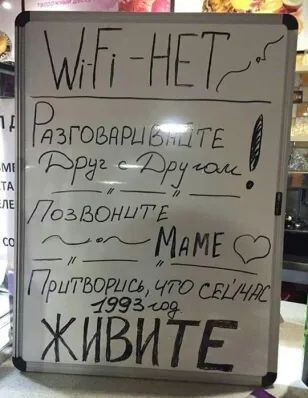 Wi-Fi-НЕТ
РАЗГОВАРИВАЙТЕ
Друг с Другом!
ПОЗВОНИТЕ
МАМЕ
ПРИТВОРИСЬ, ЧТО СЕЙЧАС
1993 год
ЖИВИТЕ